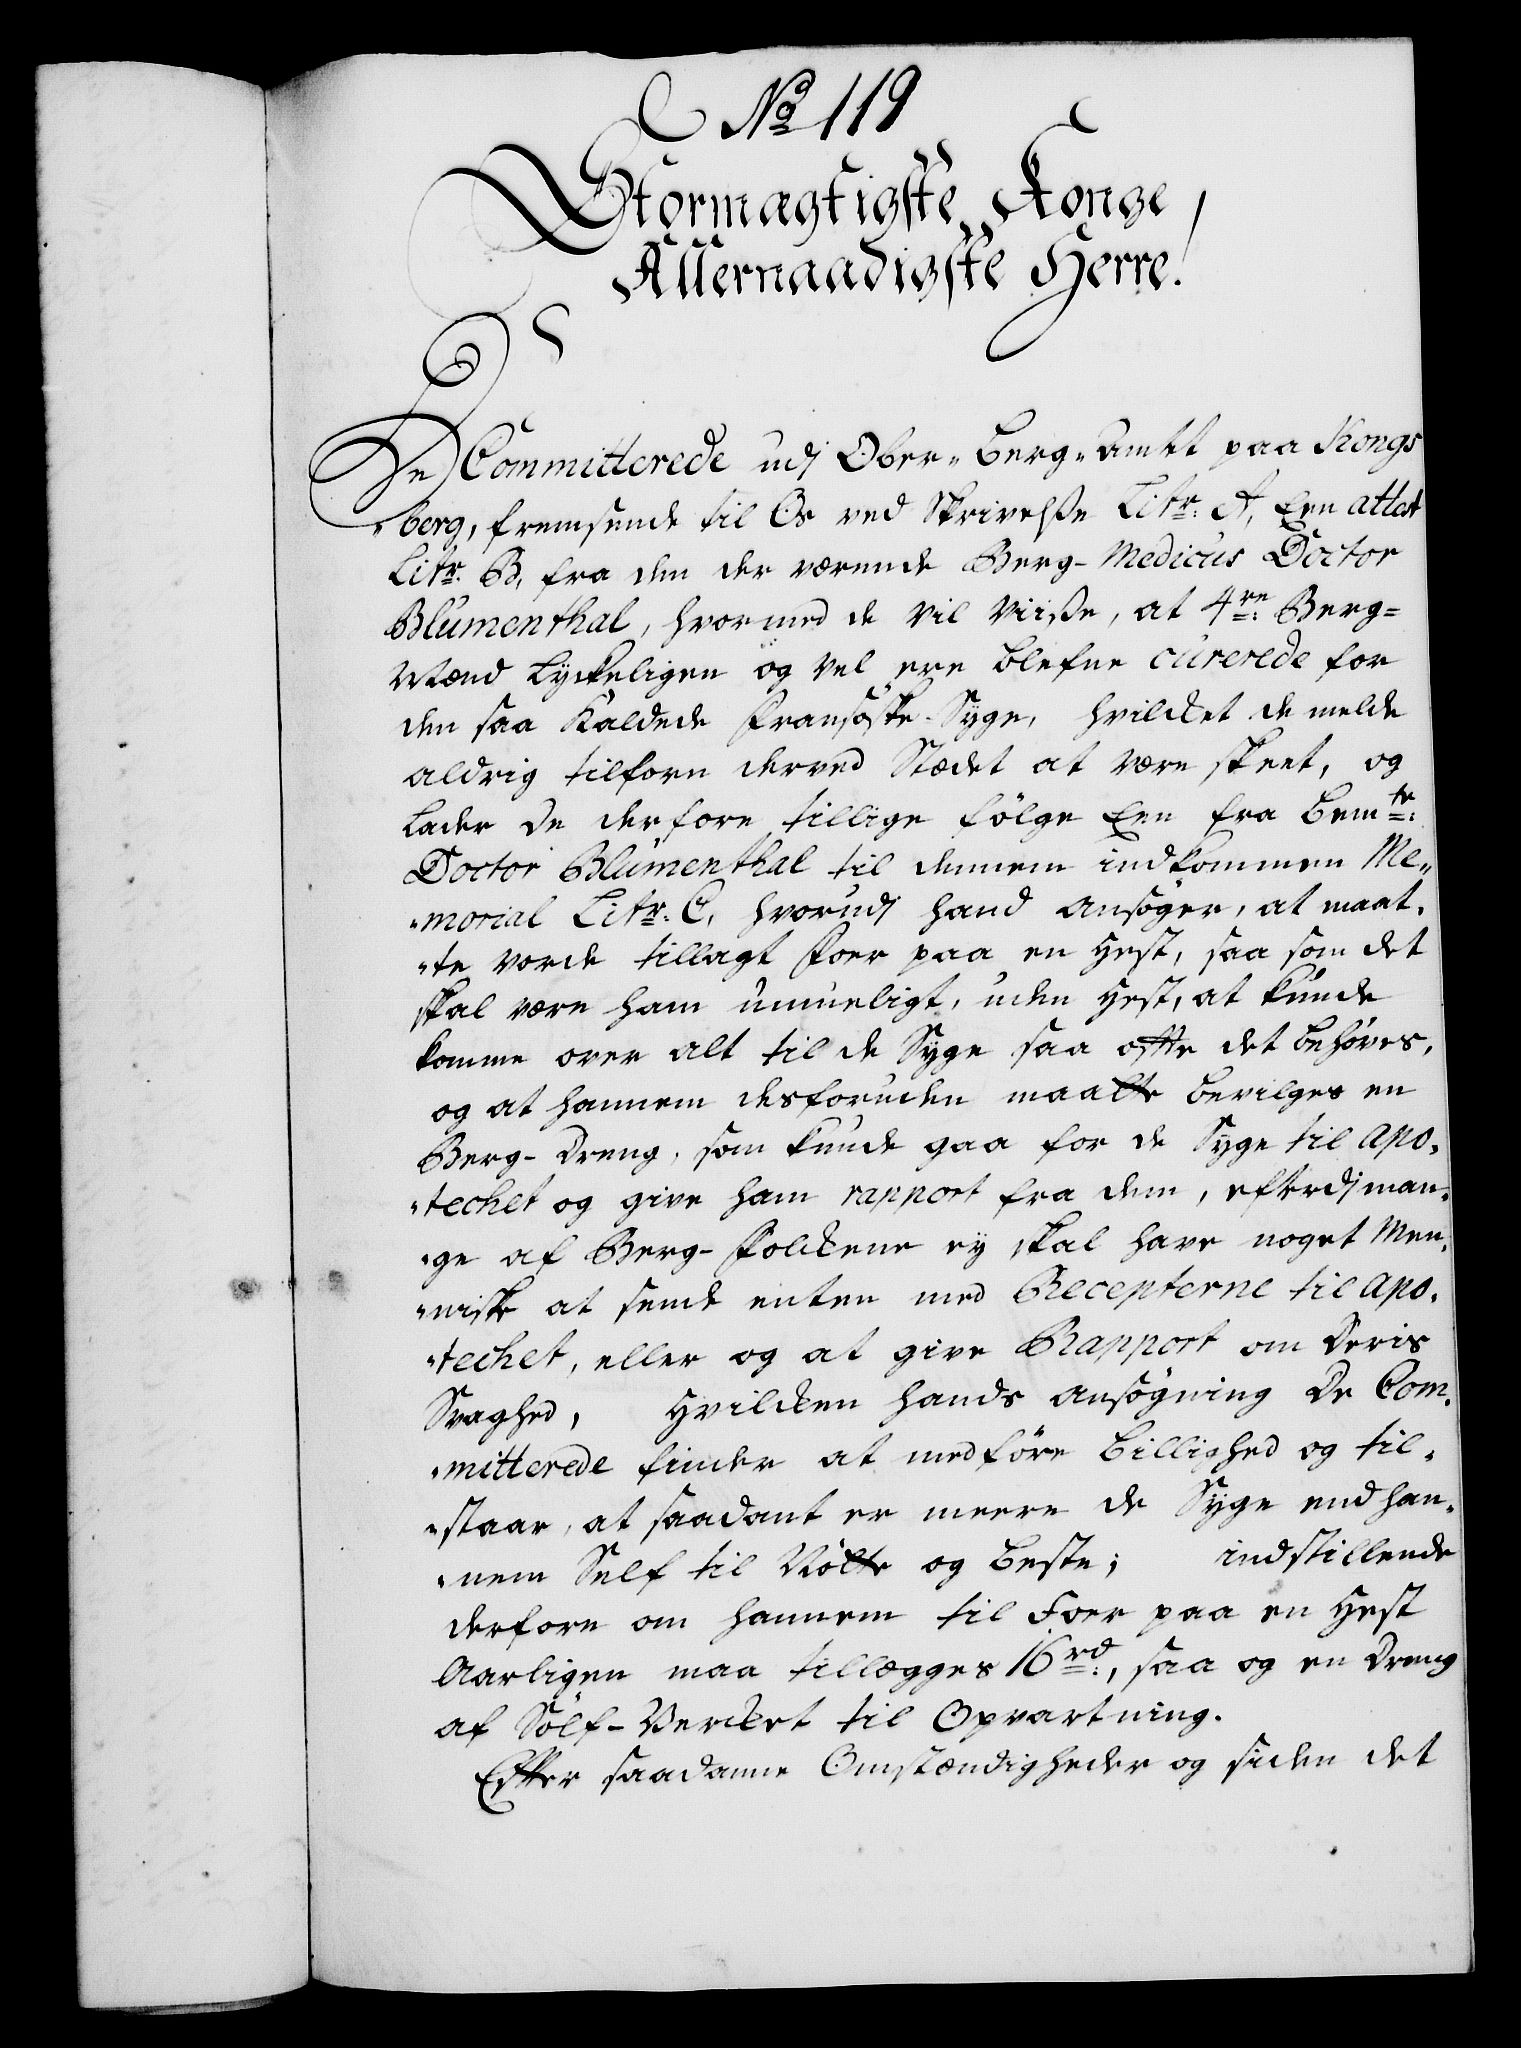 No 119
Stormægtigste Konge
Allernaadigste Herre!
De Committerede udj Ober-Berg-Amtet paa Kongs
-berg, fremsende til Os ved Skrivelsse Litr: A, Een attest
Litr. B, fra den der værende Berg-Medicus Doctor
Blumenthal, hvormed de vil viisse, at 4re: Berg-
Mænd lyckeligen og vel ere blefne curerede for
den saa kaldede Fransöske-Syge, hvilcket de melde
aldrig tilforn derved Stædet at være skeet, og
lader de derfore tillige fölge Een fra bemte:
Doctor Blumenthal til dennem indkommen Me-
-morial Litr: C, hvorudj hand ansöger, at maat-
-te vorde tillagt Foer paa en Hest, saa som det
skal være ham umueligt, uden Hest, at kunde
komme over alt til de Syge saa offte det behöves,
og at hannem desforuden maatte bevilges en
Berg-Dreng, som kunde gaa for de Syge til Apo-
-techet og give ham rapport fra dem, efterdj man-
-ge af Berg-Folckene ey skal have noget Men-
-niske at sende enten med Recepterne til Apo-
-techet, eller og at give Rapport om deris
Svaghed, Hvilcken hands ansögning De Com-
-mitterede finder at medföre billighed og til-
-staar, at saadant er meere de Syge end han-
-nem Self til Nötte og beste; indstillende
derfore om hannem til Foer paa en Hest
Aarligen maa tillægges 16rd:, saa og en Dreng
af Sölf-Vercket til Opvartning.
Effter saadanne Omstændigheder og siden det